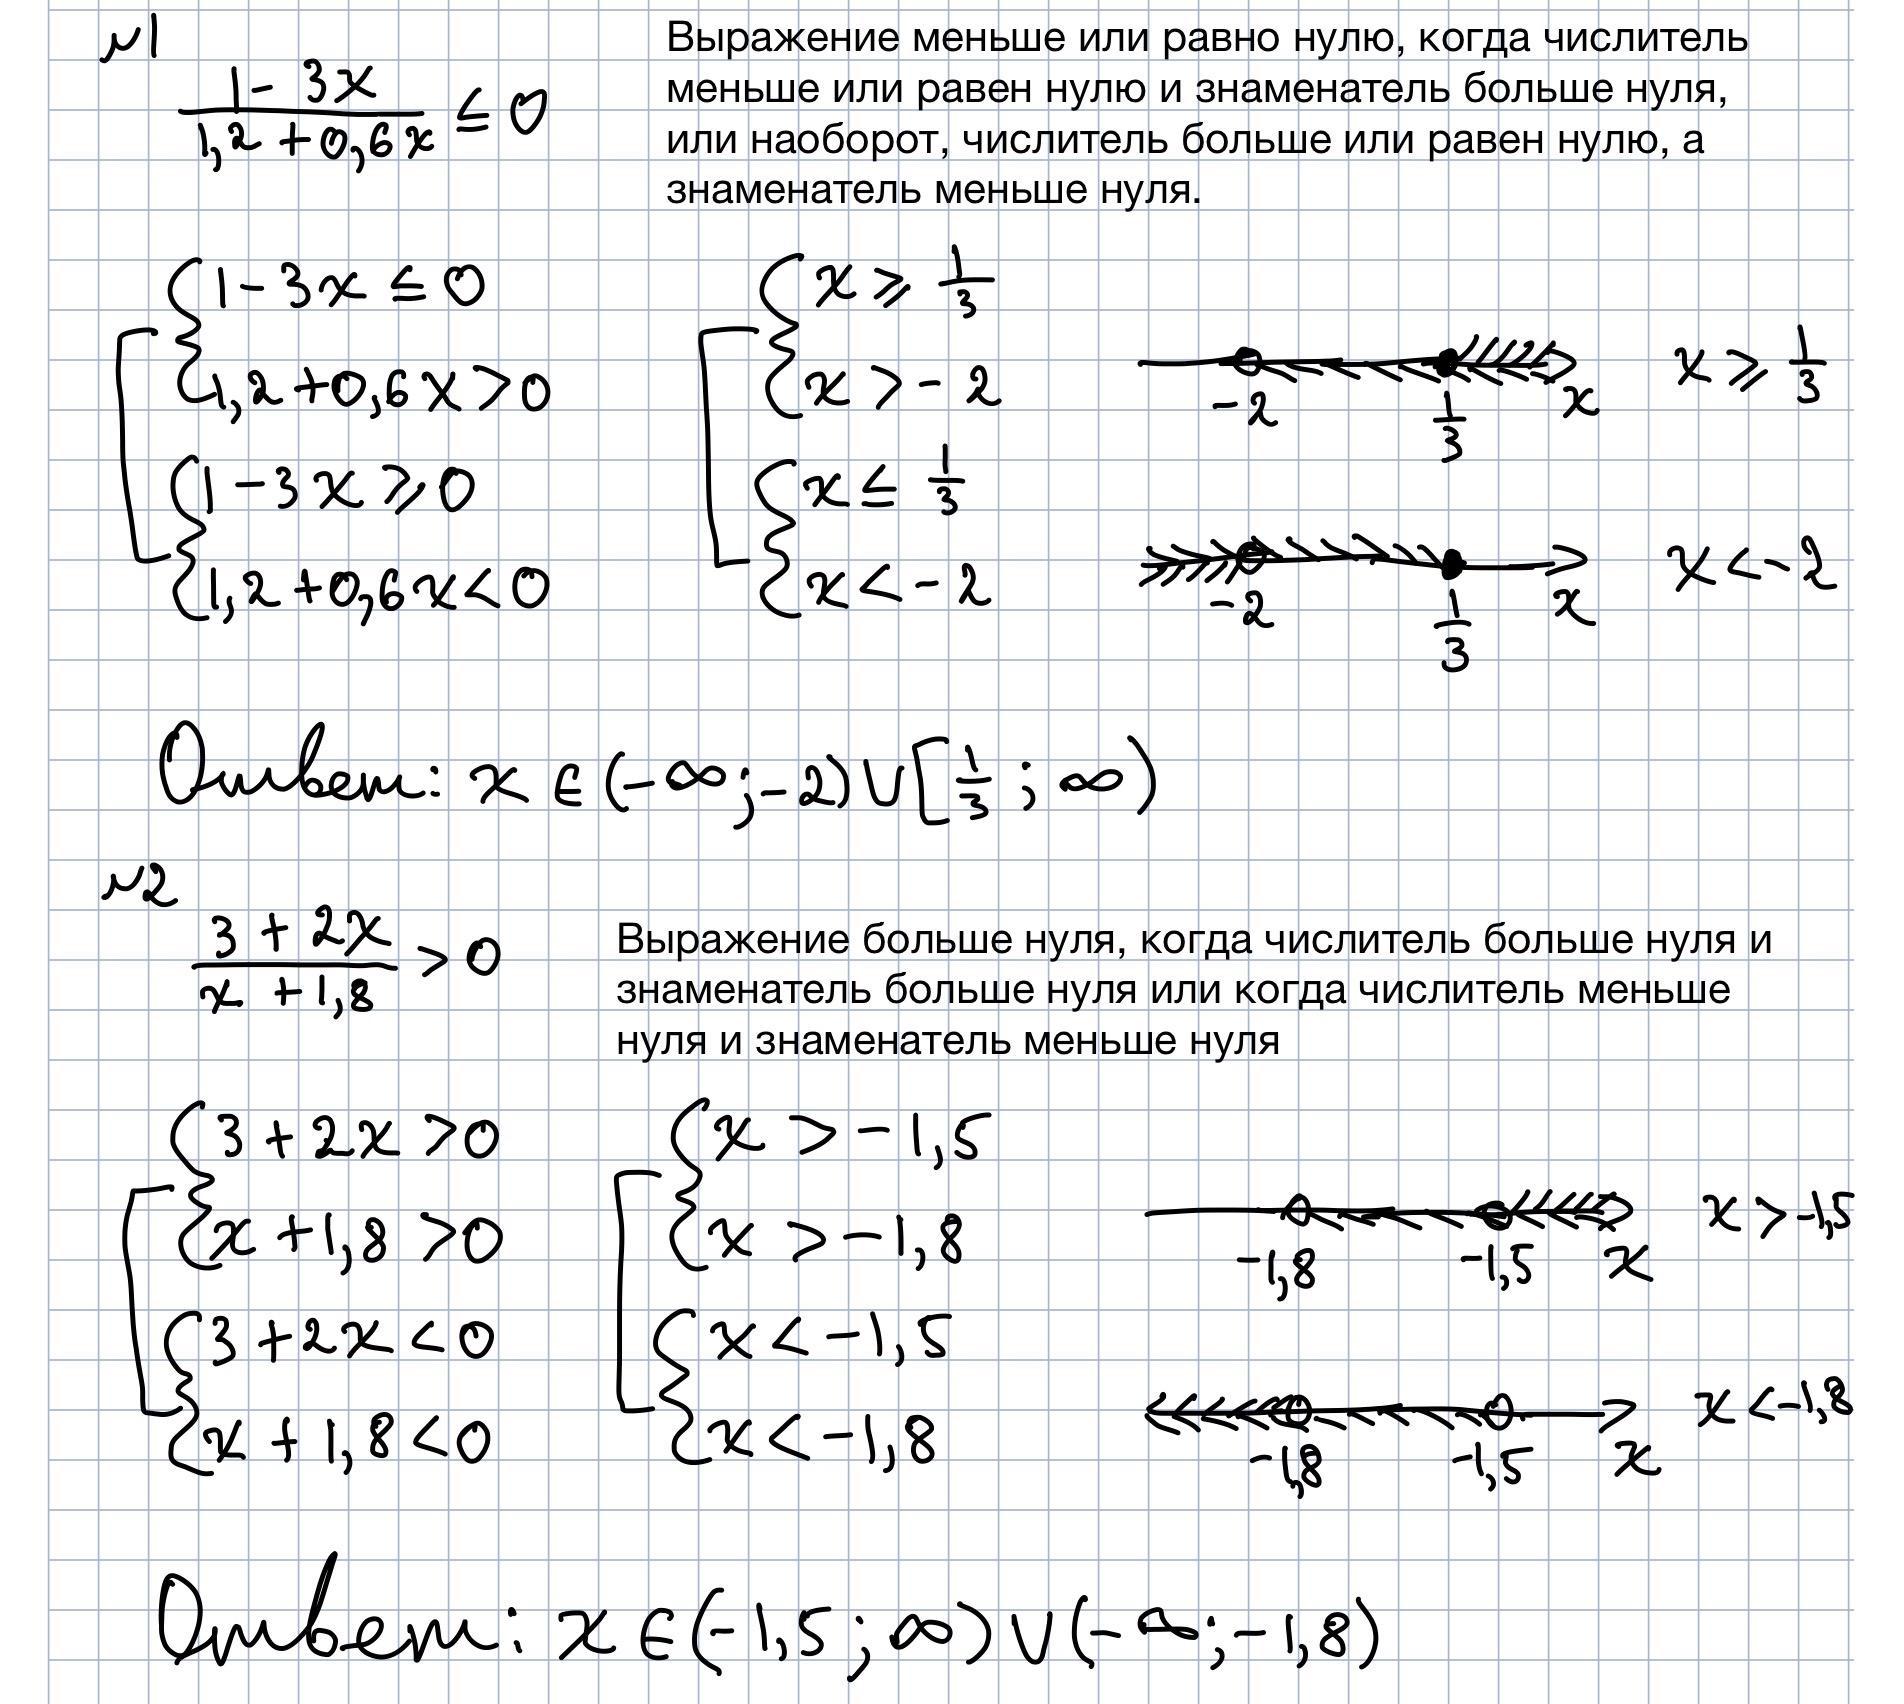 №1
(1 - 3x)/(1,2 + 0,6x) ≤ 0
Выражение меньше или равно нулю, когда числитель
меньше или равен нулю и знаменатель больше нуля,
или наоборот, числитель больше или равен нулю, а
знаменатель меньше нуля.
1 - 3x ≤ 0
1,2 + 0,6x > 0
1 - 3x ⩾ 0
1,2 + 0,6x < 0
x ⩾ 1/3
x > -2
x ≤ 1/3
x < -2
-2 1/3 x
x ⩾ 1/3
-2 1/3 x
x < -2
Ответ: x ∈ (-∞; -2) ∪ [1/3; ∞)
№2
(3 + 2x)/(x + 1,8) > 0
Выражение больше нуля, когда числитель больше нуля и
знаменатель больше нуля или когда числитель меньше
нуля и знаменатель меньше нуля
3 + 2x > 0
x + 1,8 > 0
3 + 2x < 0
x + 1,8 < 0
x > -1,5
x > -1,8
x < -1,5
x < -1,8
-1,8 -1,5 x
x > -1,5
-1,8 -1,5 x
x < -1,8
Ответ: x ∈ (-1,5; ∞) ∪ (-∞; -1,8)